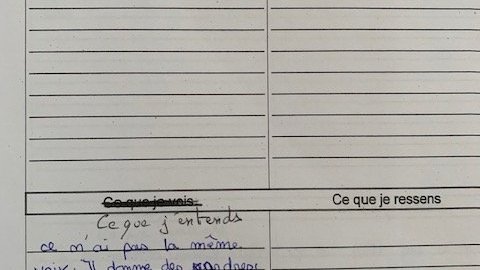 Ce que je vois
Ce que je ressens
Ce que j'entends
ce n'ai pas la même
voix. Il donne des